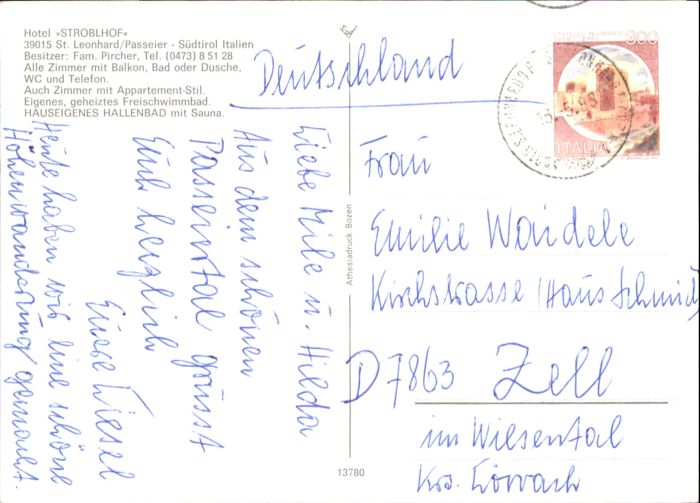 Hotel »STROBLHOF«
39015 St. Leonhard/Passeier - Südtirol Italien
Besitzer: Fam. Pircher, Tel. (0473) 8 51 28
Alle Zimmer mit Balkon, Bad oder Dusche,
WC und Telefon.
Auch Zimmer mit Appartement-Stil.
Eigenes, geheiztes Freischwimmbad.
HAUSEIGENES HALLENBAD mit Sauna.
Liebe Mile u. Hilda
Aus dem schönen
Passeiertal grüsst
Euch herzlich
Eure Liesel
Heute haben wir eine schöne
Höhenwanderung gemacht.
Athesiadruck Bozen
13780
900
ITALIA
Deutschland
Frau
Emilie Waidele
Kirchstrasse (Haus Schmid)
D 7863 Zell
im Wiesental
Krs. Lörrach